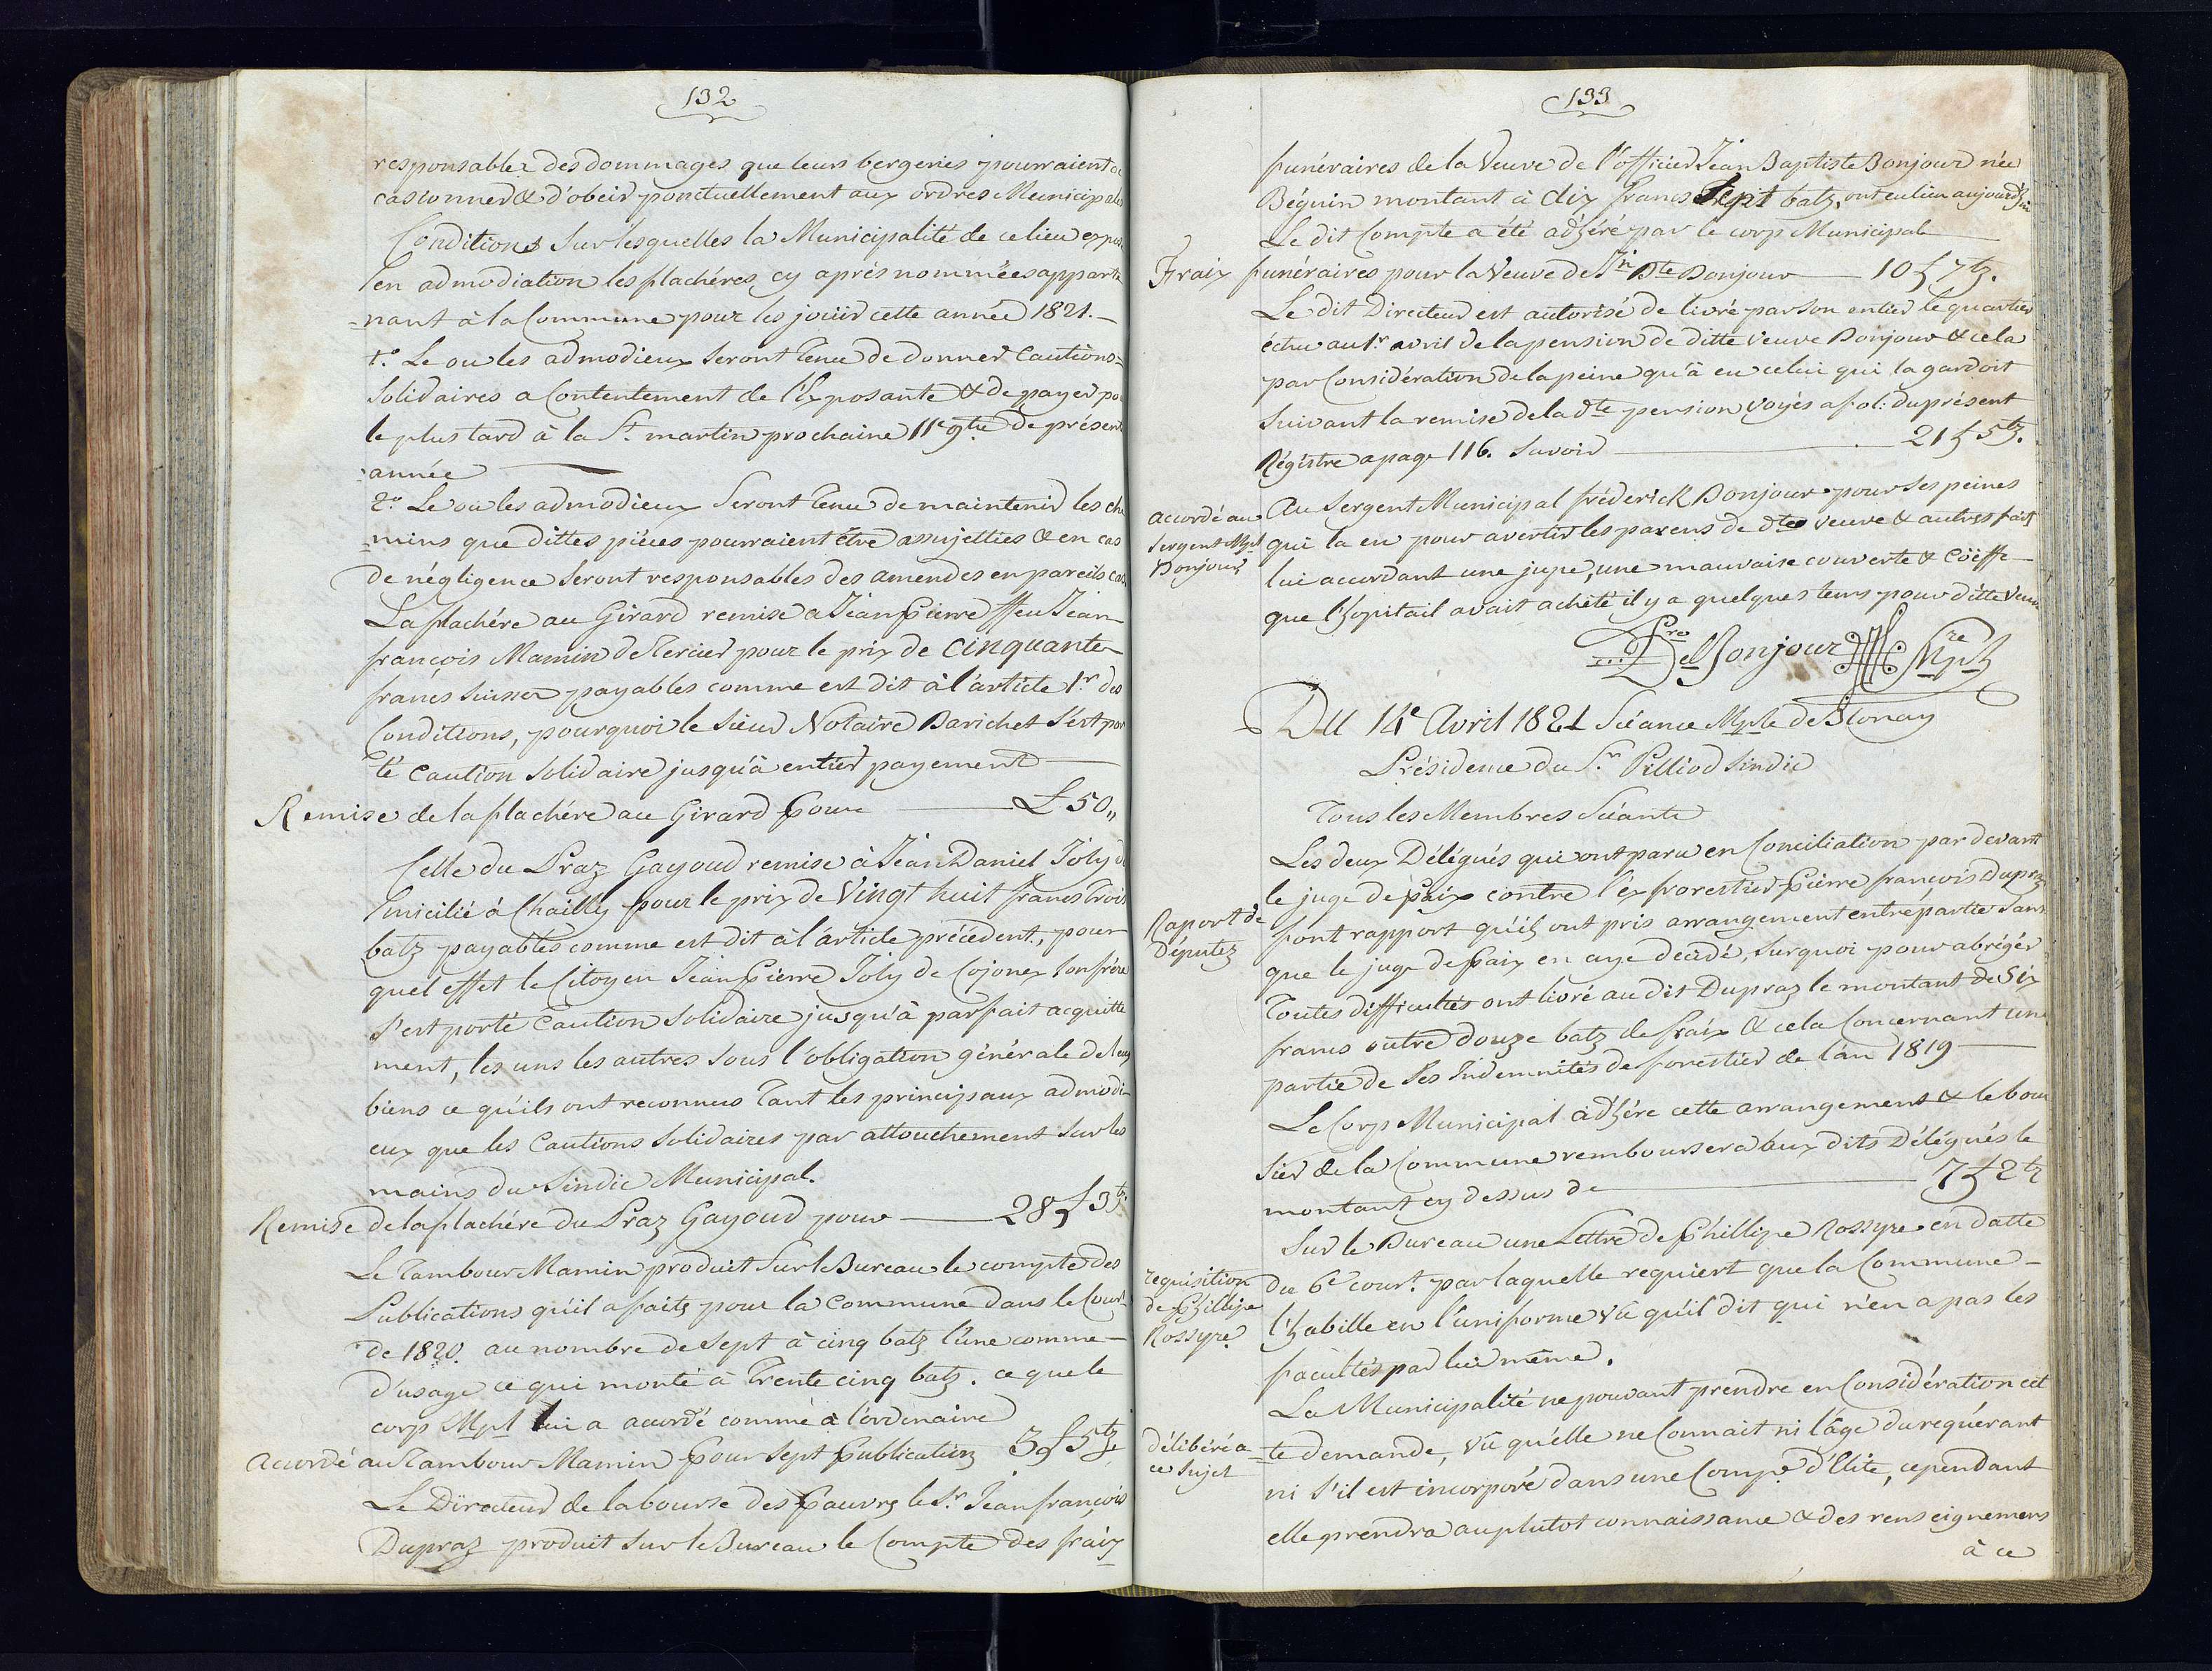 132
responsables des dommages que leurs bergeries pourraient oc
casionner & d'obeir ponctuellement aux ordres Municipales
Conditions sur lesquelles la Municipalité de ce lieu expose
en admodiation les flachéres, cy aprés nommées apparte
-nant à la Commune pour les jouiir cette année 1821.—
1.o Le ou les admodieux seront tenu de donner Cautions-
Solidaires a Contentement de l'Exposante & de payer pou
le plus tard à la St. martin prochaine 11e 9bre de présente
-année
2.o Le ou les admodieux seront tenu de maintenir les che
-mins que dittes piéces pourraient être assujetties & en cas
de négligence seront responsables des amendes en pareils cas
La flachére au Girard remise a Jéan Pierre ffeu Jéan
françois Mamin de Tercier pour le prix de Cinquante
francs suisses payables comme est dit à l'article 1r des
Conditions, pourquoi le sieur Notaire Barichet s'est por
té Caution Solidaire jusqu'à entier payement
Remise de la flachére au Girard pour £ 50,,
Celle du Praz Gayoud remise à Jéan Daniel Joly do
micilié à Chailly pour le prix de Vingt huit francs trois
batz payables comme est dit à l'article précédent, pour
quel effet le Citoyen Jéan Pierre Joly de Cojonex son frére
s'est porté Caution Solidaire jusqu'à parfait acquitte
ment, les uns les autres sous l'obligation générale de leurs
biens ce qu'ils ont reconnus tant les principaux admodi-
eux que les Cautions Solidaires par attouchement sur les
mains du Sindic Municipal.
Remise de la flachére du Praz Gayoud pour 28 £ 3tz
Le Tambour Mamin produit sur le Bureau le compte des
Publications qu'il a faits pour la Commune dans le Court
de 1820. au nombre de sept à cinq batz l'une comme—
d'usage ce qui monte à Trente cinq batz. ce que le
corp Mpl lui a accordé comme à l'ordinaire
Accordé au Tambour Mamin pour sept publications 3 £ 5tz.
Le Directeur de la bourse des Pauvres le Sr. Jéan françois
Dupraz produit sur le Bureau le Compte des fraix
133
funéraires de la Veuve de l'officier Jéan Baptiste Bonjour née
Béguin montant à dix francs Sept batz, ont eu lieu aujourd'hui
Le dit Compte a été adhéré par le corp Municipal
Fraix funéraires pour la Veuve de Jn Bte Bonjour 10 £ 7tz.
Le dit Directeur est autorisé de livré par son entier le quartier
échu au 1r avril de la pension de ditte veuve Bonjour & cela
par Considération de la peine qu'à eu celui qui la gardoit
suivant la remise de la dte pension voyés a fol: du présent
Régistre a page 116. Savoir 21 £ 5tz.
Accordé au
Sergent Mpl
Bonjour
Au Sergent Municipal fréderick Bonjour pour ses peines
qui la eu pour avertir les parens de dtes veuve & autres faits
lui accordant une jupe, une mauvaise couverte & Cöeffe
que l'hopitail avait acheté il y a quelques tems pour ditte Veuve
fres Del Bonjour Sre Mpl
Du 14e Avril 1821 Séance Mple de Blonay
Présidence du Sr. Pilliod Sindic
Tous les Membres Séants
Raport de
députez
Les deux Délégués qui ont paru en Conciliation par devant
le juge de paix contre l'ex forestier Pierre françois Dupraz
font rapport qu'ils ont pris arrangement entrépartie sans
que le juge de paix en aye décidé, surquoi pour abréger
Toutes difficultés ont livré au dit Dupraz le montant de Six
francs outre douze batz de fraix & cela Concernant une
partie de ses Indemnités de forestier de l'an 1819
Le Corp Municipal adhére cette arrangement & le bour
sier de la Commune remboursera aux dits Délégués le
montant cy dessus de 7 £ 2tz
requisition
de Phillipe
Rossyre
Sur le Bureau une Lettre de Phillipe Rossyre en datte
du 6e court. par laquelle requiert que la Commune—
l'habille en l'uniforme vû qu'il dit qui n'en a pas les
facultés par lui même.
délibéré a
ce sujet
La Municipalité ne pouvant prendre en Considération cet
-te demande, vû qu'elle ne Connait ni l'âge du requérant
ni s'il est incorporé dans une Compe d'Elite, cependant
elle prendra au plutot connaissance & des renseignemens
à ce